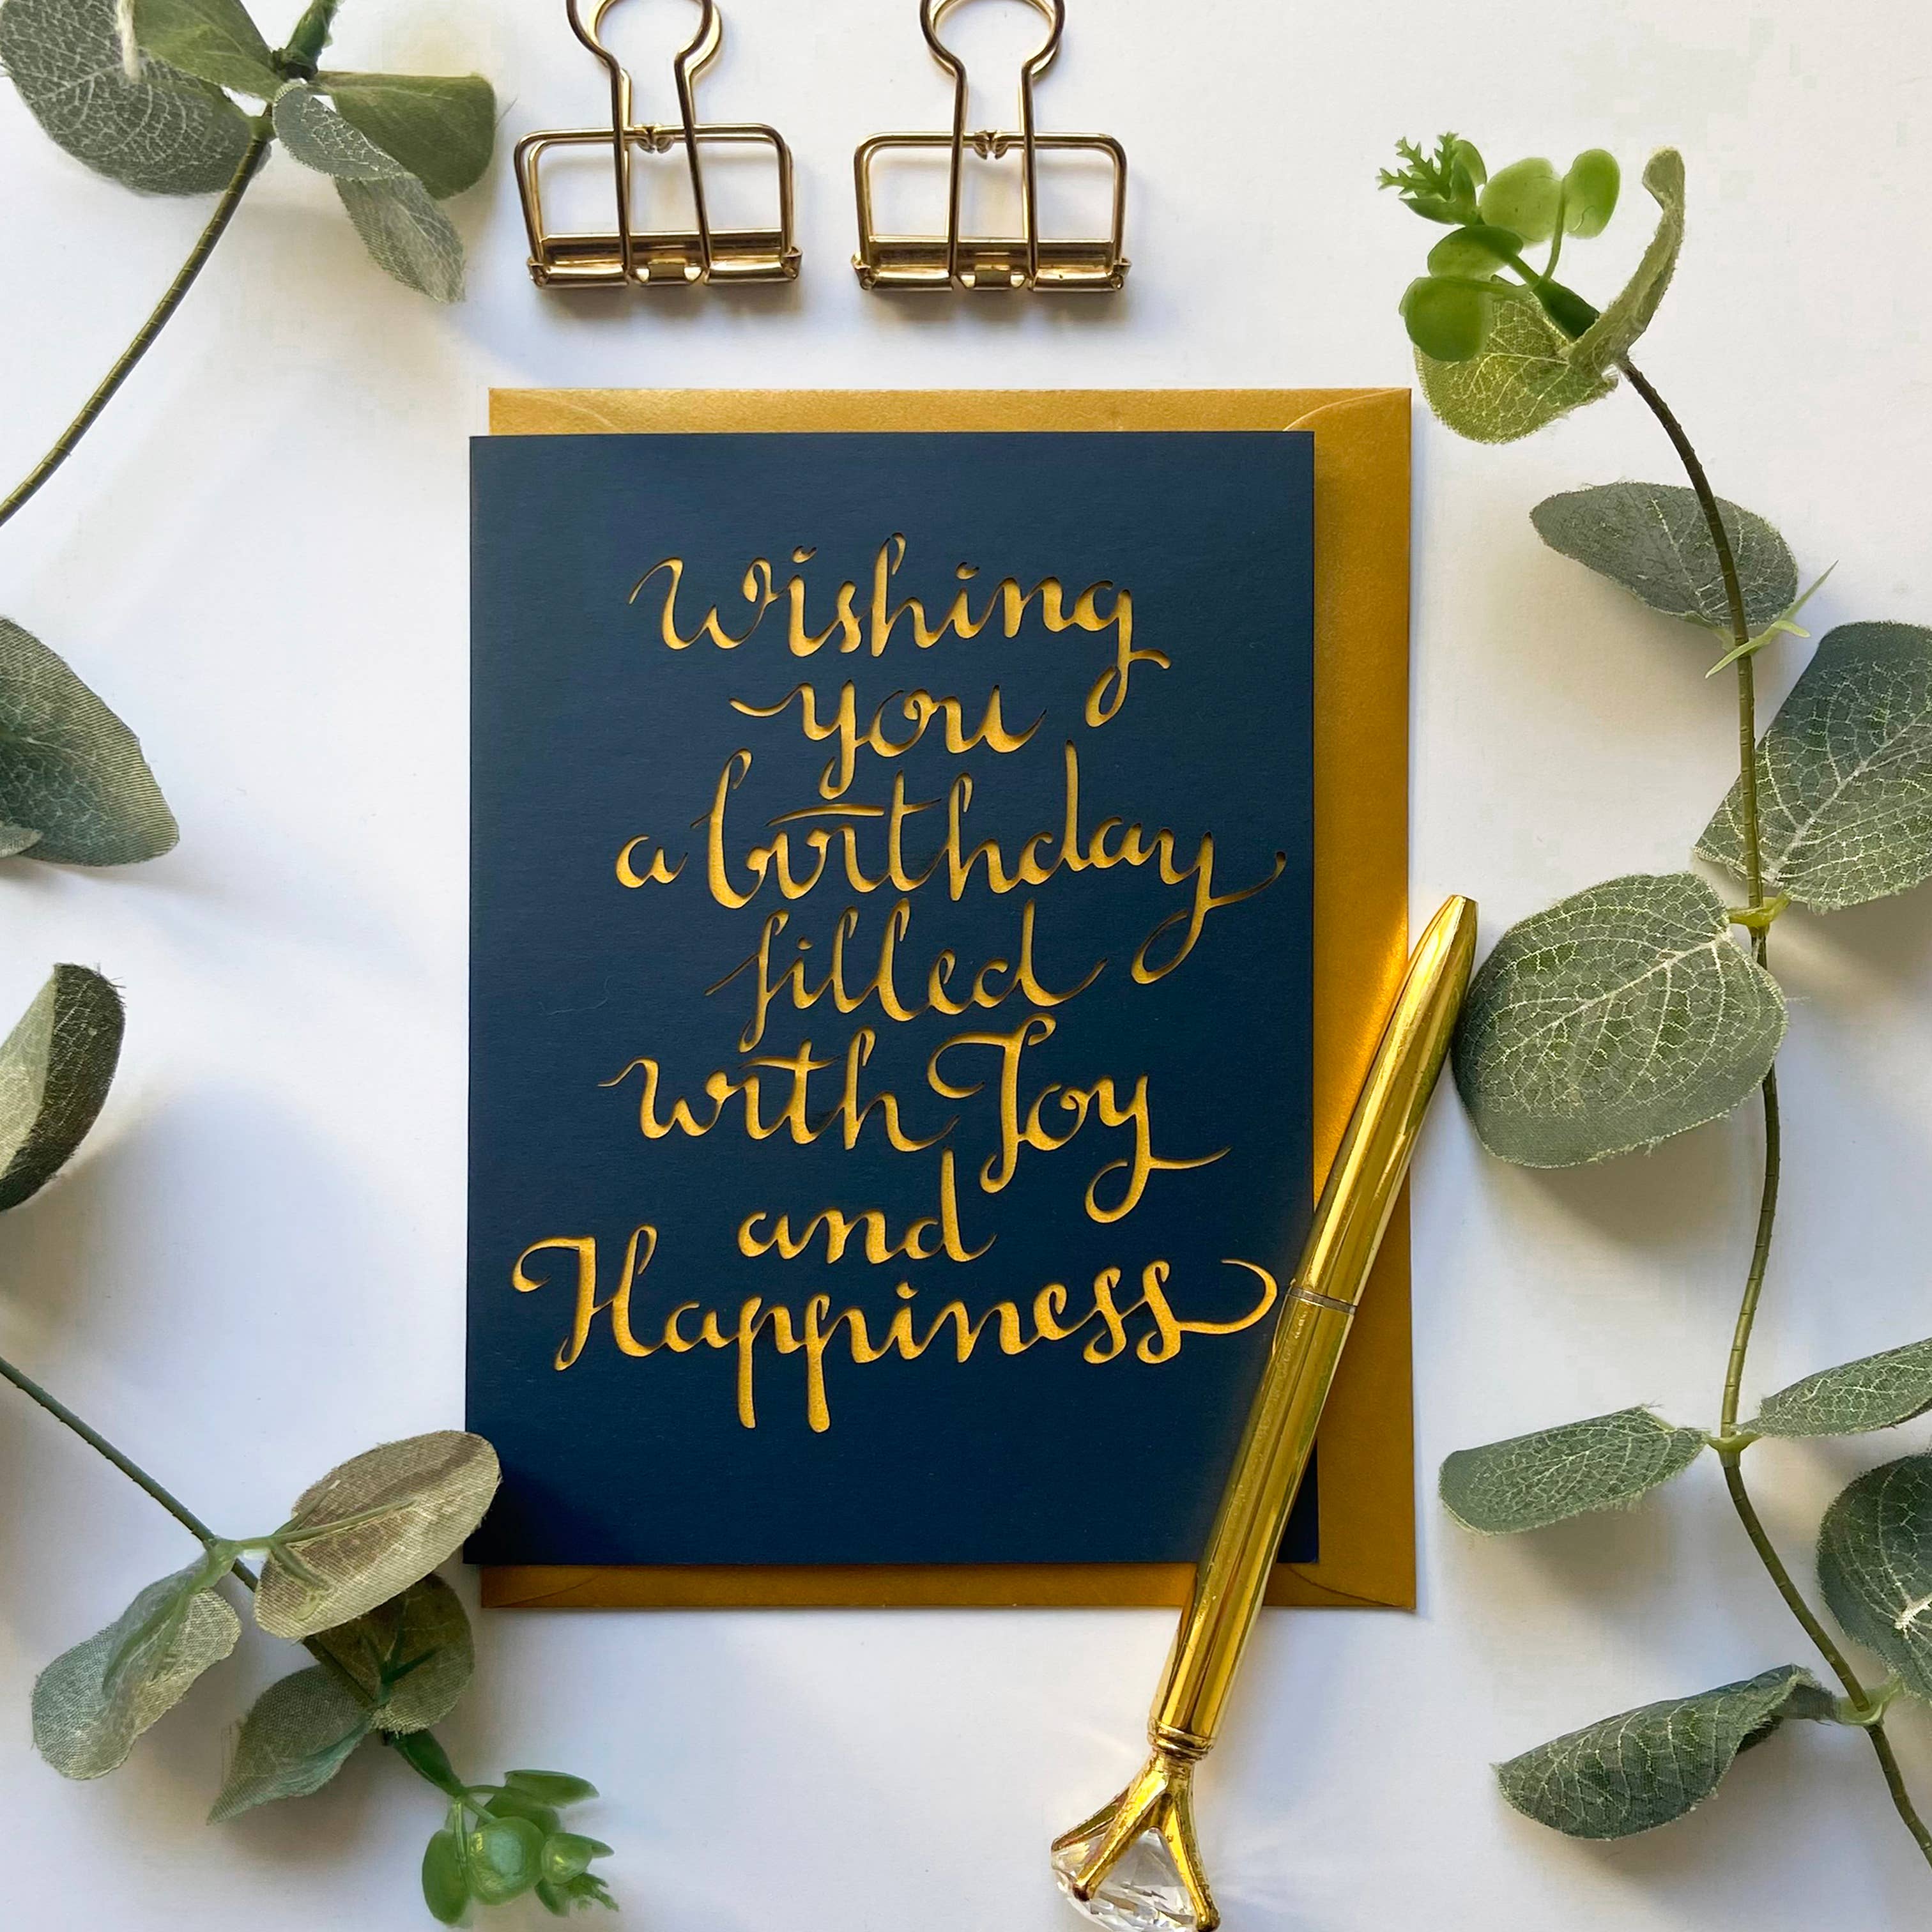 Wishing
you
a birthday
filled
with Joy
and
Happiness